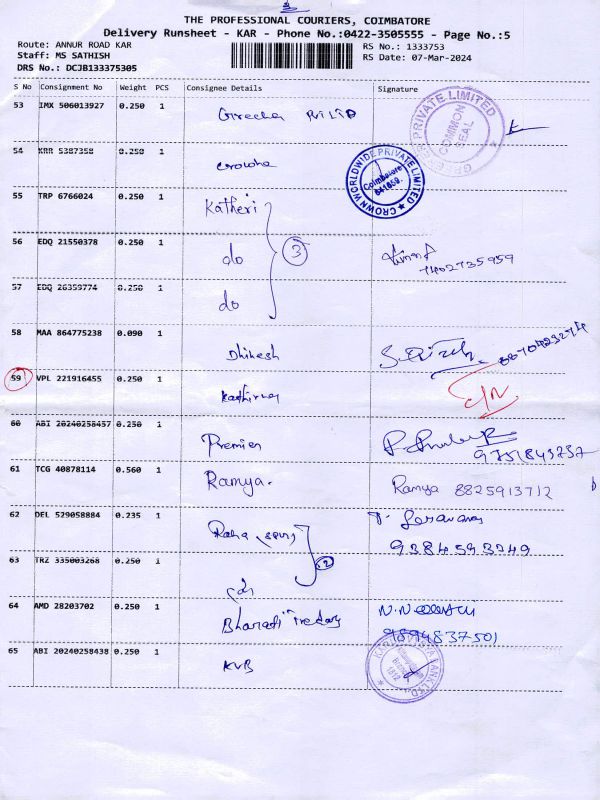 THE PROFESSIONAL COURIERS, COIMBATORE
Delivery Runsheet - KAR - Phone No.:0422-3505555 - Page No.:5
Route: ANNUR ROAD KAR
Staff: MS SATHISH
DRS No.: DCJB133375305
RS No.: 1333753
RS Date: 07-Mar-2024
S No Consignment No Weight PCS Consignee Details Signature
53 IMX 506013927 0.250 1
PRIVATE LIMITED
COMMON SEAL
54 KRR 5387358 0.250 1 crowne
CROWN WORLDWIDE PRIVATE LIMITED
Coimbatore
641659.
55 TRP 6766024 0.250 1 Katheri
56 EDQ 21550378 0.250 1 do 3
7402735959
57 EDQ 26359774 0.250 1 do
58 MAA 864775238 0.090 1 Dhikesh
59 VPL 221916455 0.250 1
60 ABI 20240258457 0.250 1 Premier
9751843737
61 TCG 40878114 0.560 1 Ramya. Ramya 8825913712
62 DEL 529058884 0.235 1
9384593249
63 TRZ 335003268 0.250 1 2
64 AMD 28203702 0.250 1 Bharati
9894837501
65 ABI 20240258438 0.250 1 KVB